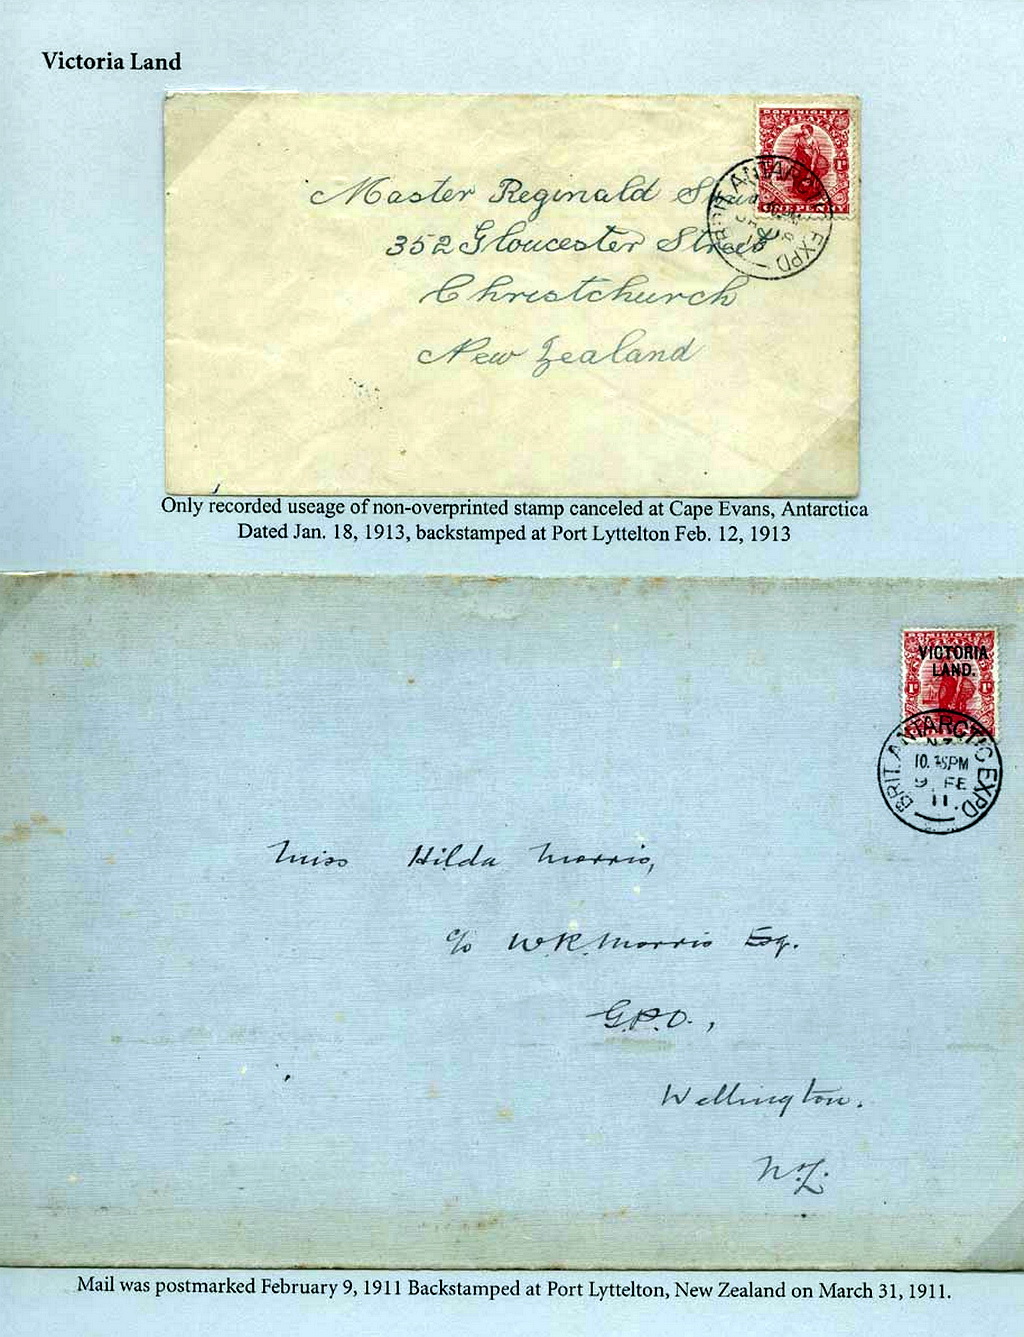 Victoria Land
DOMINION OF
Master Reginald
352 Gloucester Street
Christchurch
New Zealand
BRIT. ANTARCTIC EXPD
Only recorded useage of non-overprinted stamp canceled at Cape Evans, Antarctica
Dated Jan. 18, 1913, backstamped at Port Lyttelton Feb. 12, 1913
DOMINION OF
VICTORIA
LAND.
BRIT. ANTARCTIC EXPD.
PM
9 FE
11.
Miss Hilda Morris,
c/o W.R. Morris Esq.
G.P.O.,
Wellington.
N.Z.
Mail was postmarked February 9, 1911 Backstamped at Port Lyttelton, New Zealand on March 31, 1911.